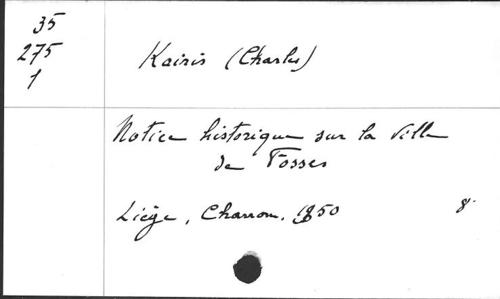 35
275
1
Kairis (Charles)
Notice historique sur la ville
de Fosses
Liège, Charron, 1850 8°